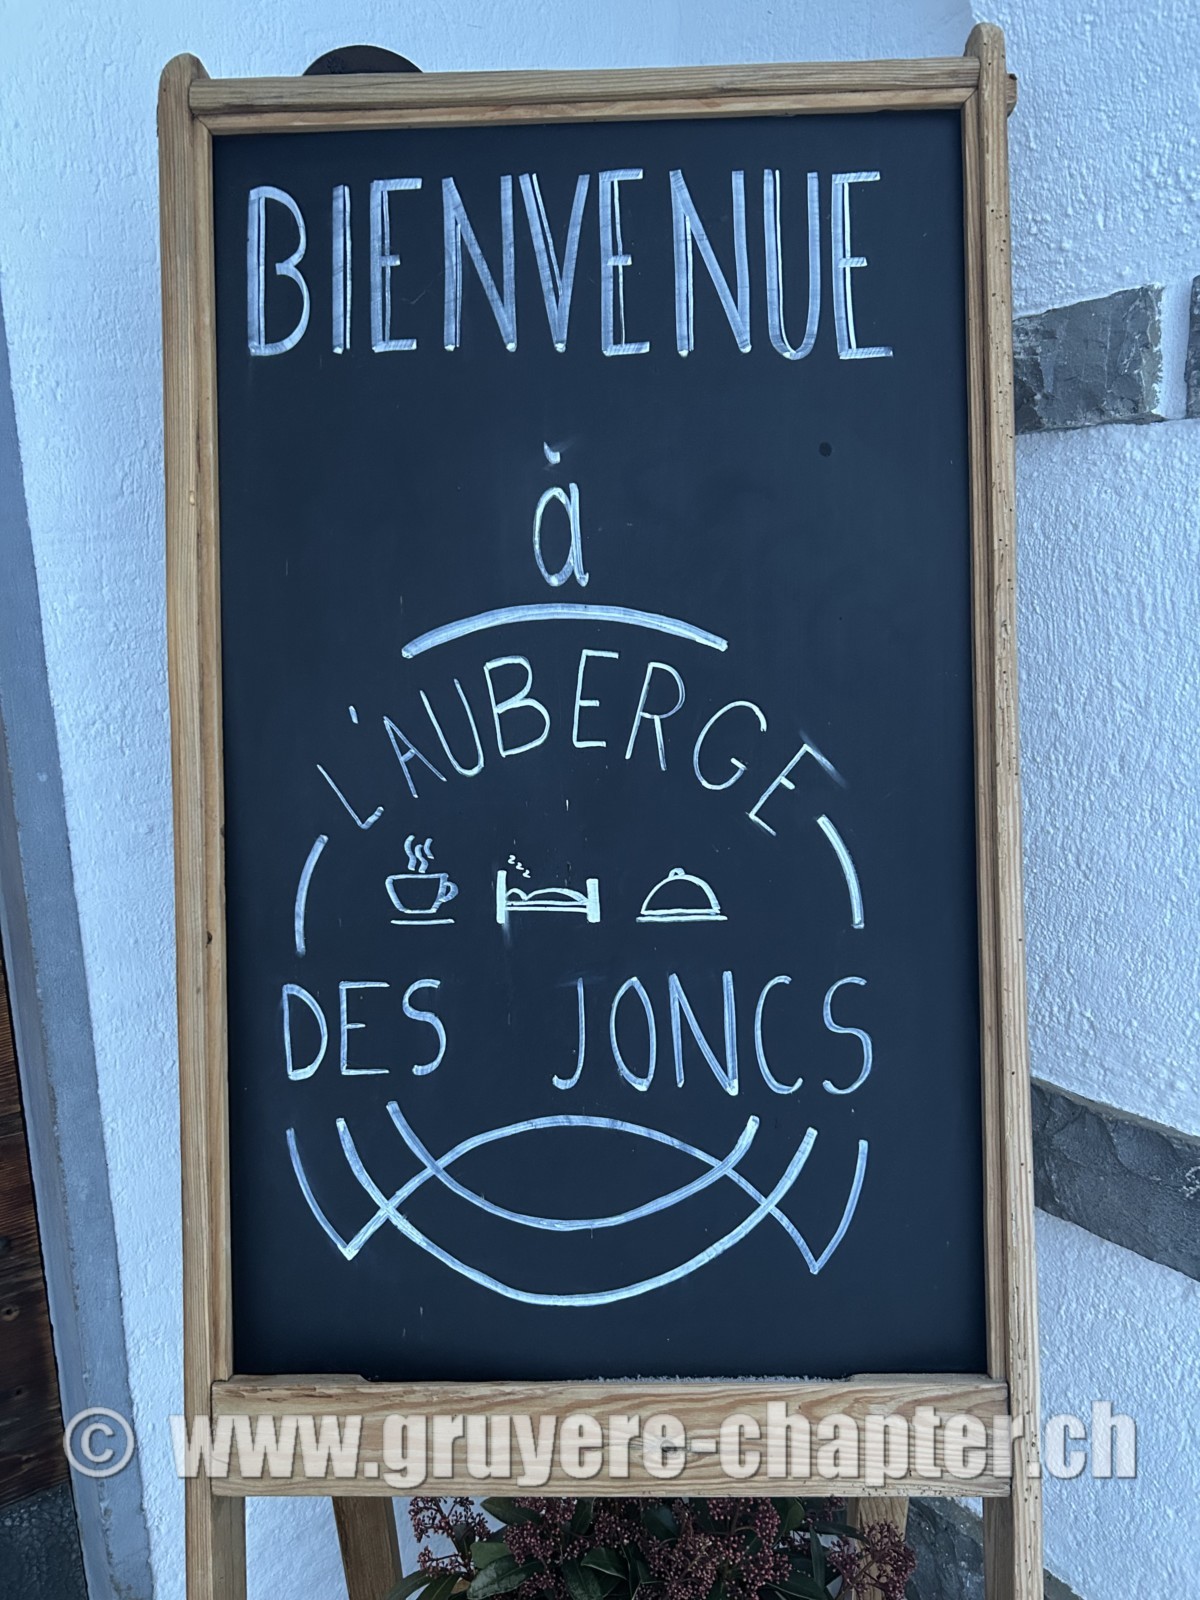 BIENVENUE
à
L'AUBERGE
zzz
DES JONCS
© www.gruyere-chapter.ch